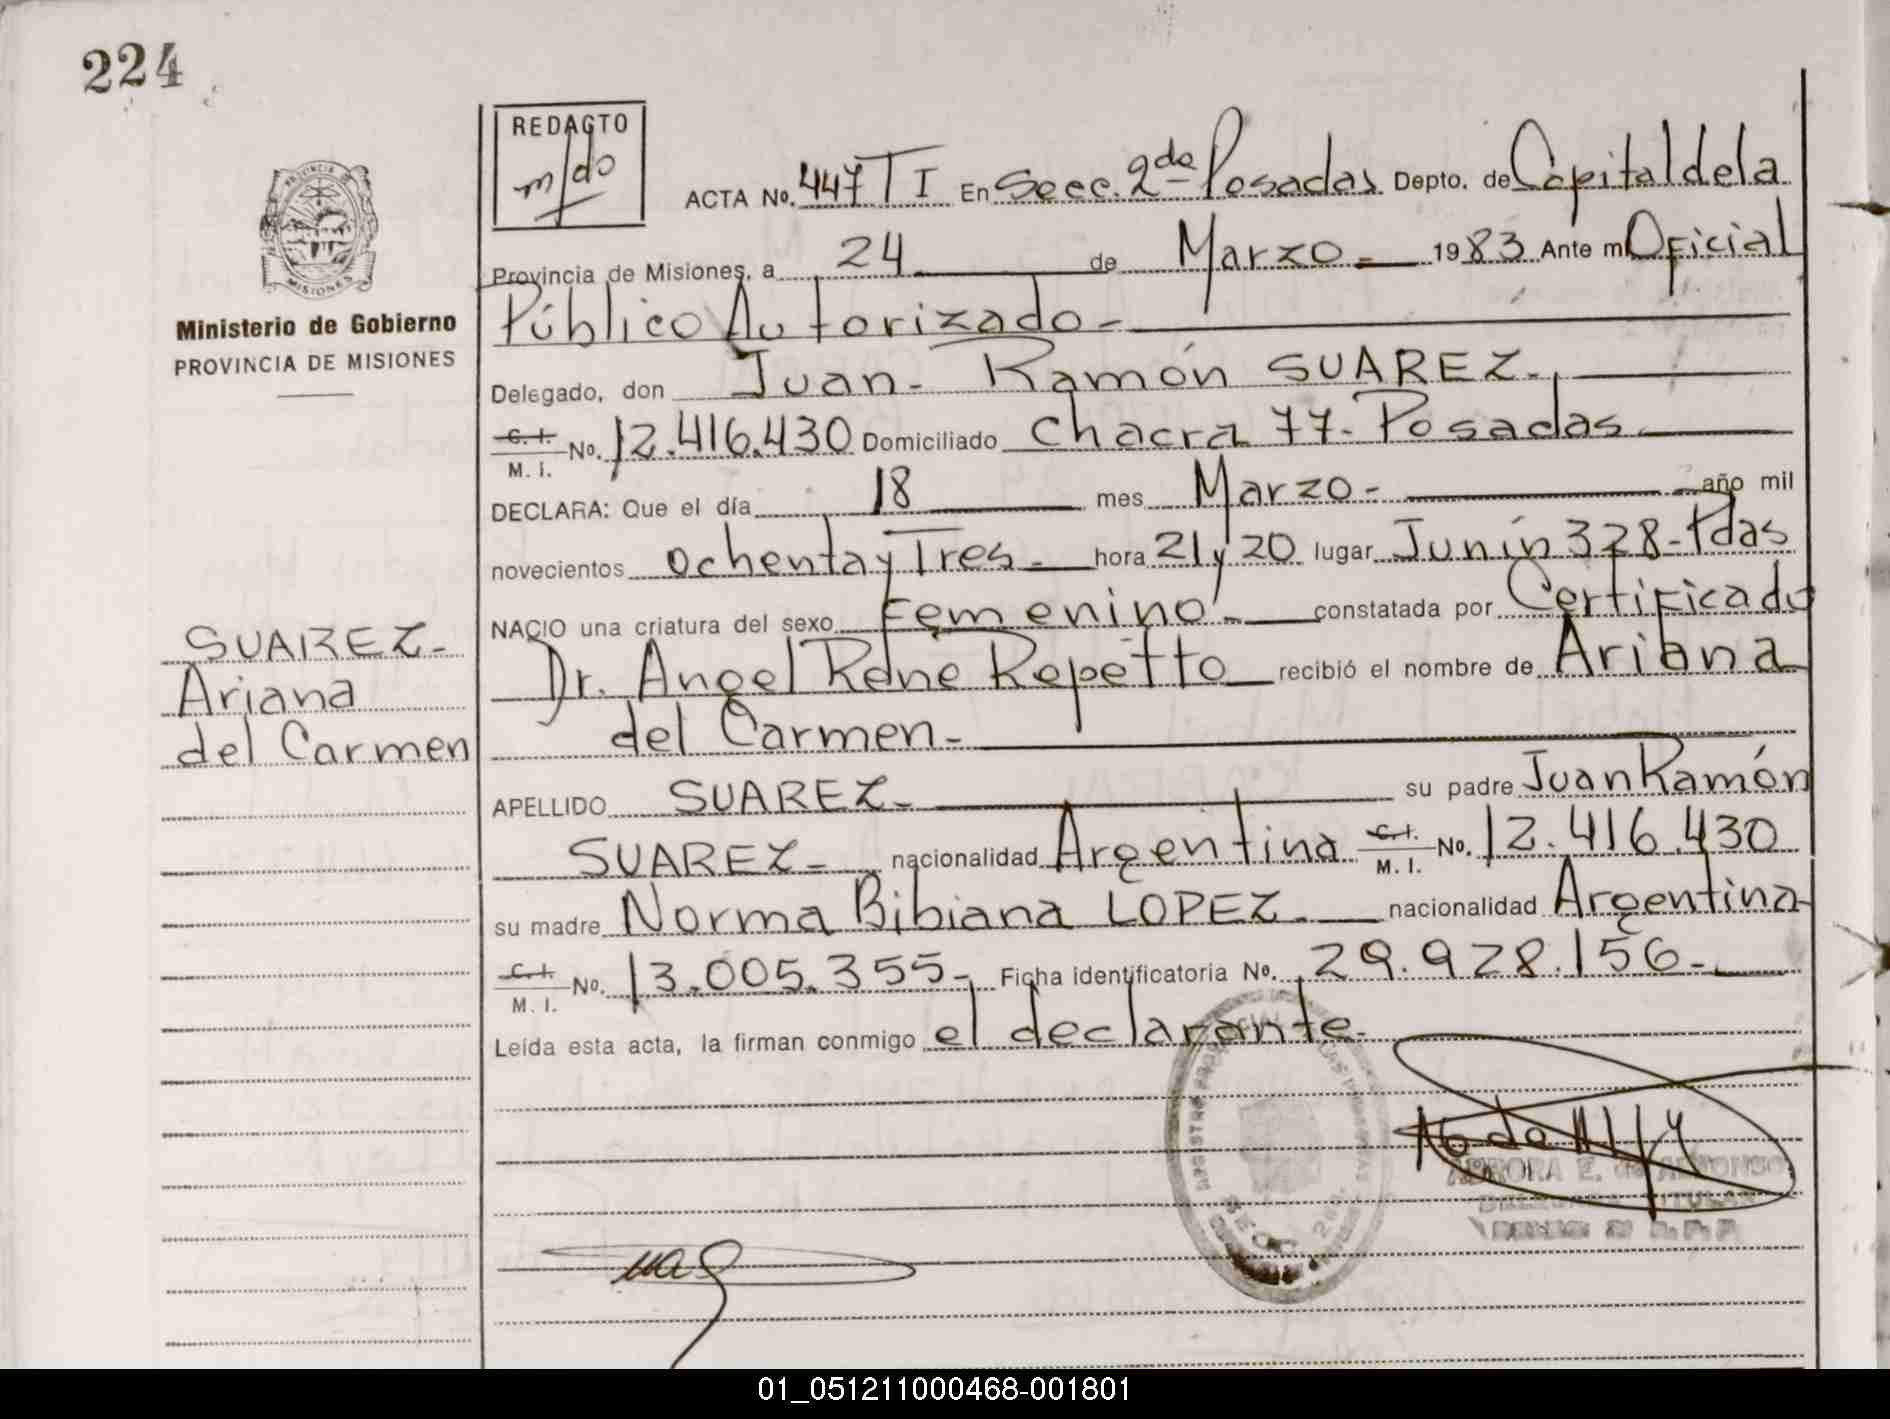 224
REDACTO
m/do
PROVINCIA DE
MISIONES
Ministerio de Gobierno
PROVINCIA DE MISIONES
ACTA No. 447 T I En Secc. 2da Posadas Depto. de Capital de la
Provincia de Misiones, a 24 de Marzo - 1983 Ante mí Oficial
Público Autorizado -
Delegado, don Juan - Ramón SUAREZ -
C. I.
M. I. No. 12.416.430 Domiciliado Chacra 77 - Posadas
DECLARA: Que el día 18 mes Marzo - año mil
novecientos ochenta y Tres - hora 21 y 20 lugar Junín 328 - Pdas
NACIO una criatura del sexo Femenino - constatada por Certificado
Dr. Angel Rene Repetto recibió el nombre de Ariana
del Carmen -
APELLIDO SUAREZ - su padre Juan Ramón
SUAREZ - nacionalidad Argentina C. I. M. I. No. 12.416.430
su madre Norma Bibiana LOPEZ - nacionalidad Argentina -
C. I.
M. I. No. 13.005.355 - Ficha identificatoria No. 29.928.156 -
Leída esta acta, la firman conmigo el declarante -
SUAREZ -
Ariana
del Carmen
SECC. 2da.
E. de
TITULAR
01_051211000468-001801